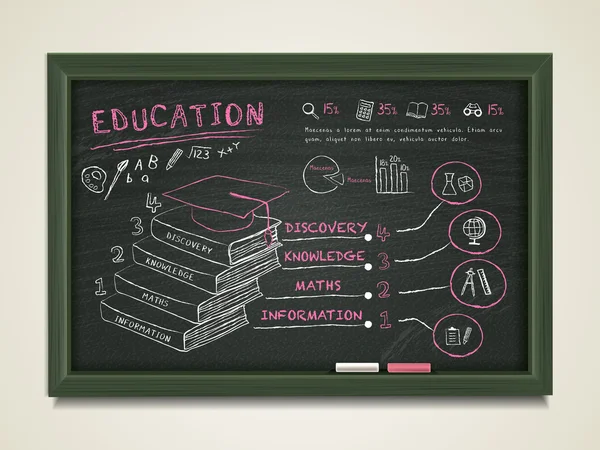 EDUCATION
15% 35% 35% 15%
Maecenas a lorem at enim condimentum vehicula. Etiam arcu
quam, aliquam vehicula dolor.
AB
ba
√123
x+y
Maecenas
Maecenas
18% 20% 10%
4
3
2
1
DISCOVERY
KNOWLEDGE
MATHS
INFORMATION
DISCOVERY 4
KNOWLEDGE 3
MATHS 2
INFORMATION 1